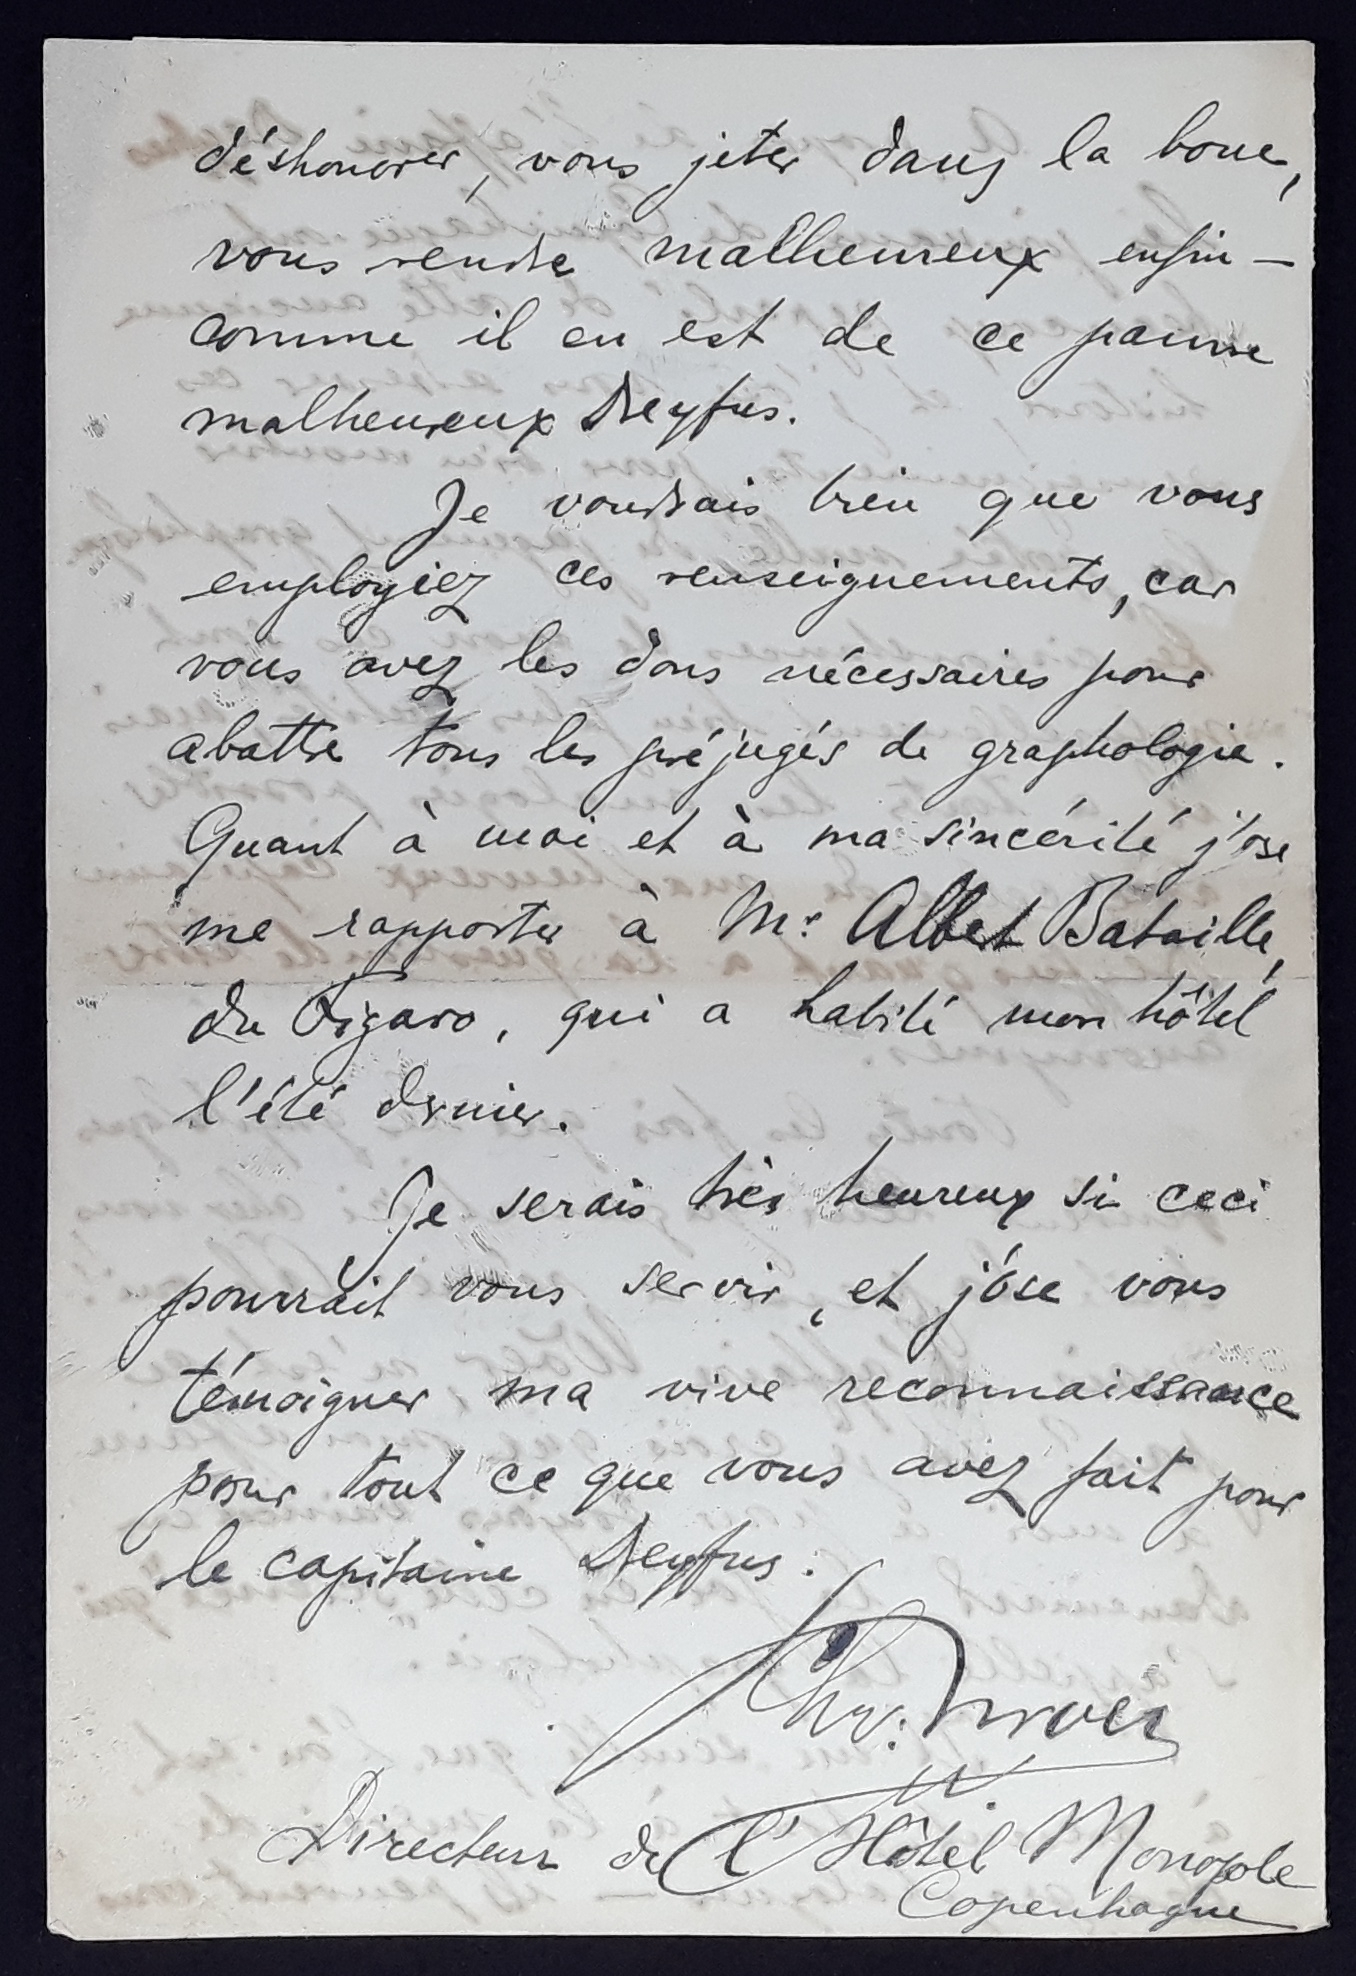 déshonorer, vous jeter dans la boue,
vous rendre malheureux enfin —
comme il en est de ce pauvre
malheureux Dreyfus.
Je voudrais bien que vous
employiez ces renseignements, car
vous avez les dons nécessaires pour
abattre tous les préjugés de graphologie.
Quant à moi et à ma sincérité j'ose
me rapporter à Mr Albert Bataille,
du Figaro, qui a habité mon hôtel
l'été dernier.
Je serais très heureux si ceci
pourrait vous servir, et j'ose vous
témoigner ma vive reconnaissance
pour tout ce que vous avez fait pour
le capitaine Dreyfus.
Chr.
Directeur de l'Hôtel Monopole
Copenhague